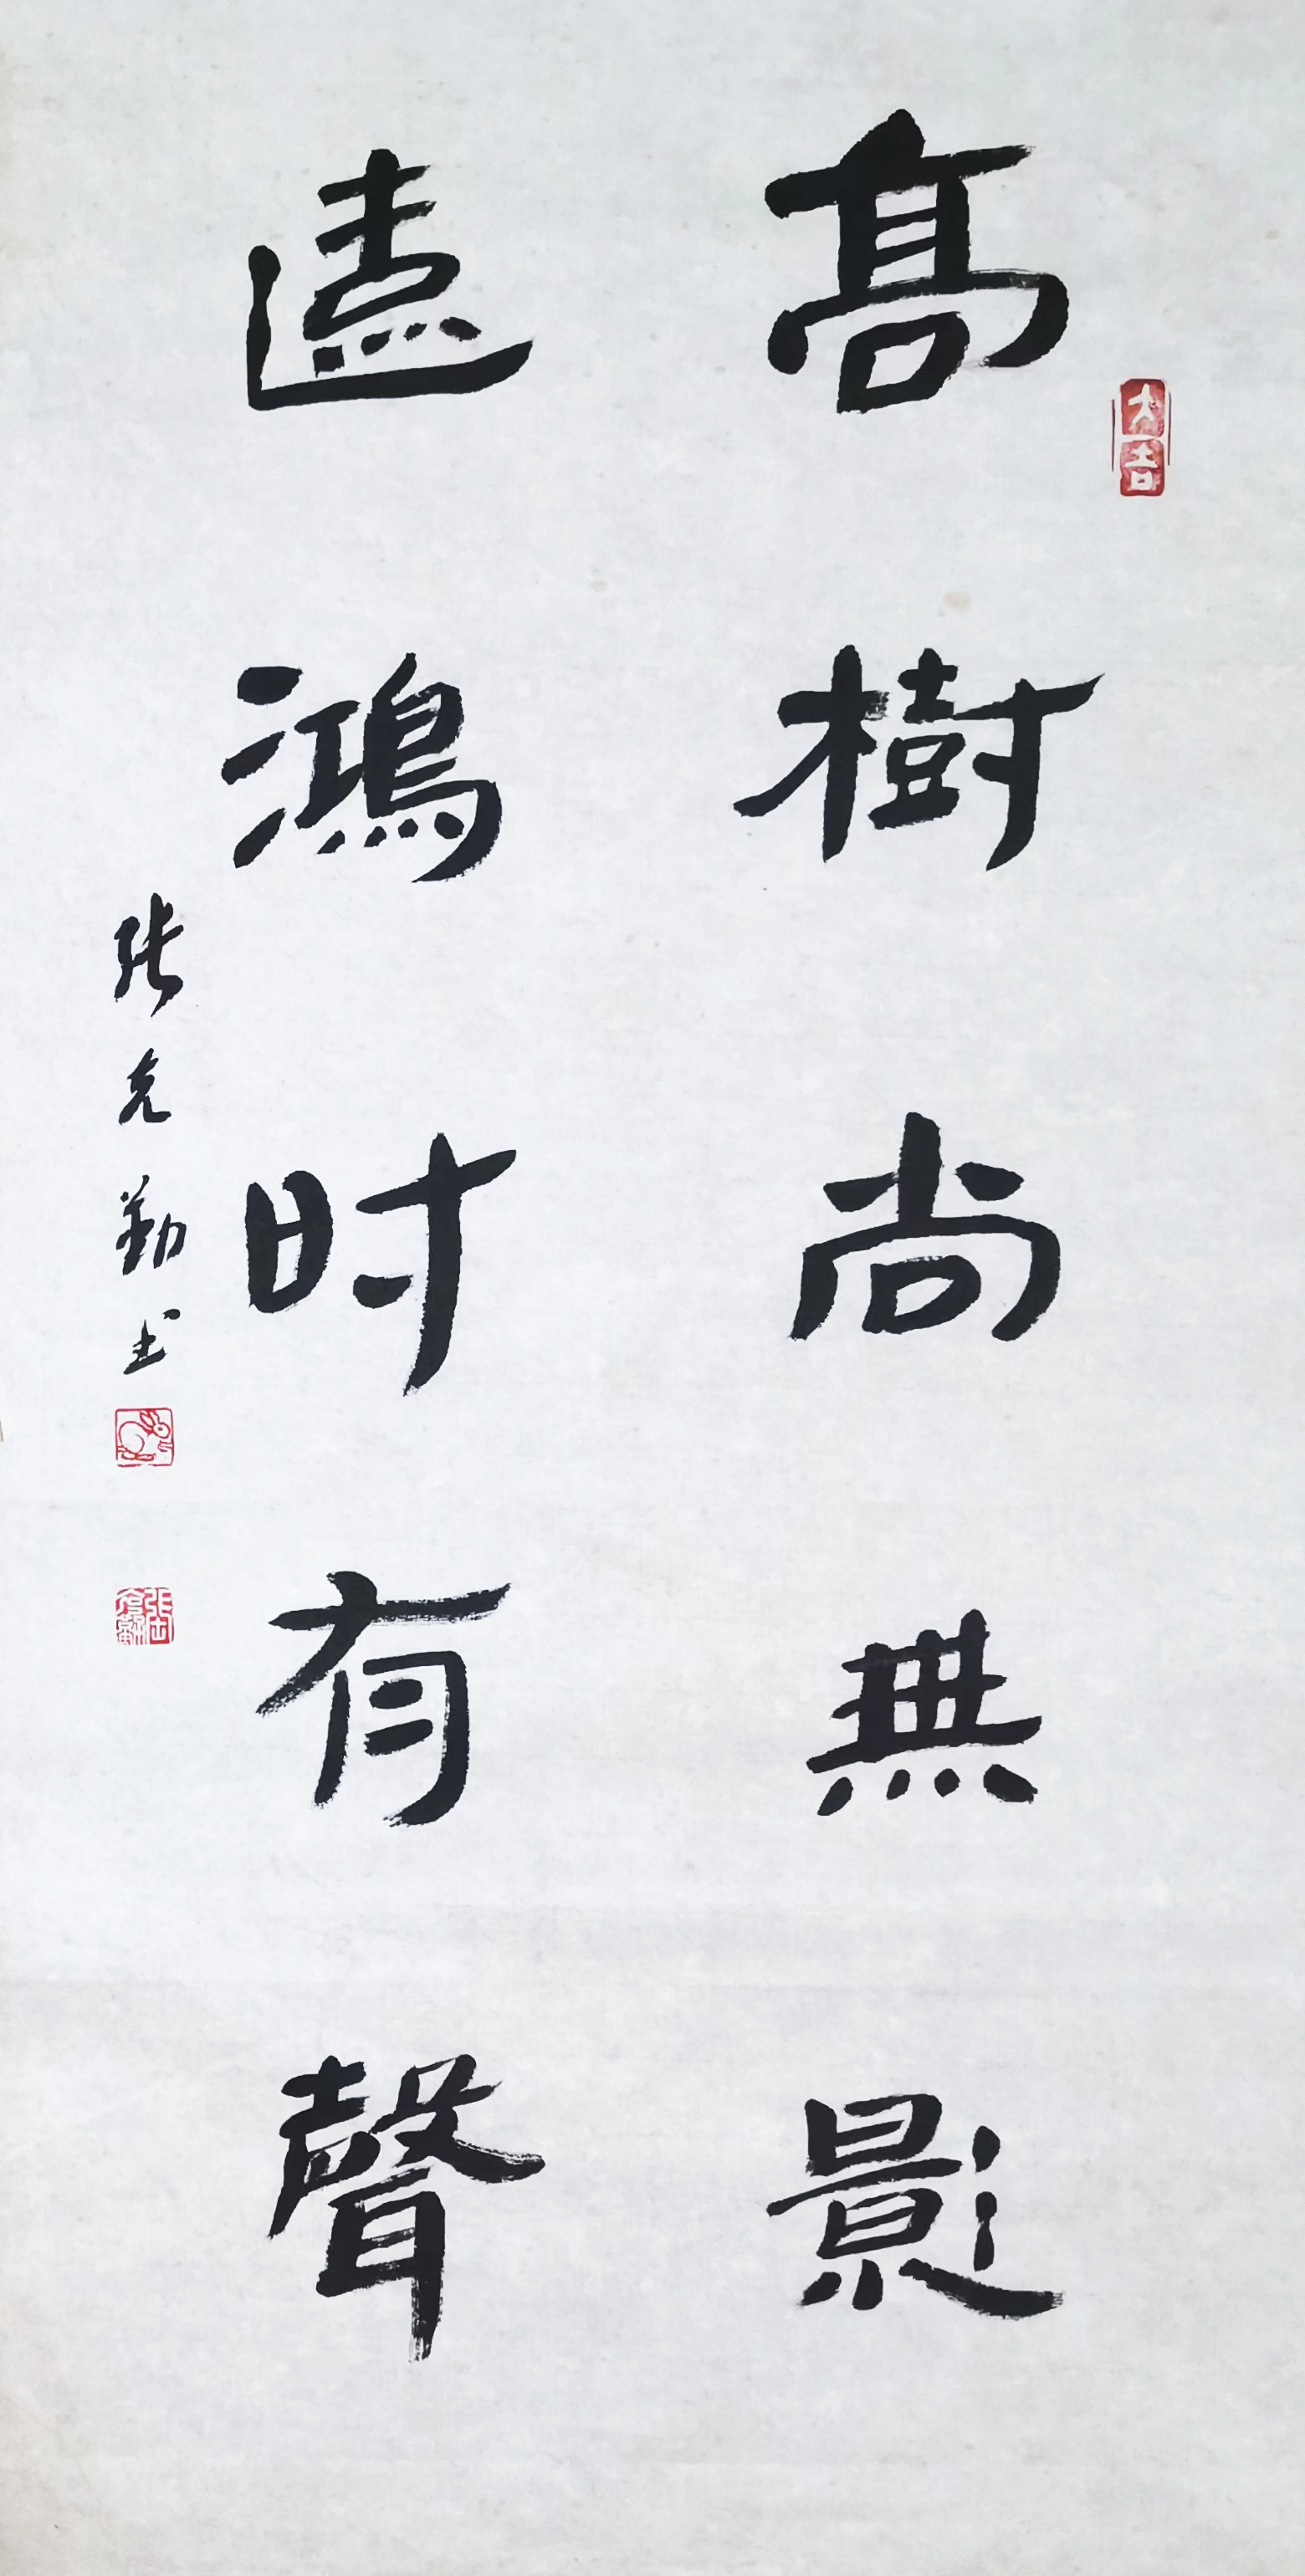 高樹尚無影
遠鴻时有聲
张克勤书
大吉